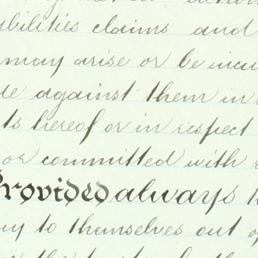 bilities claims and
may arise or be incu
against them in
ts hereof or in respect
or committed with
Provided always
to themselves out o